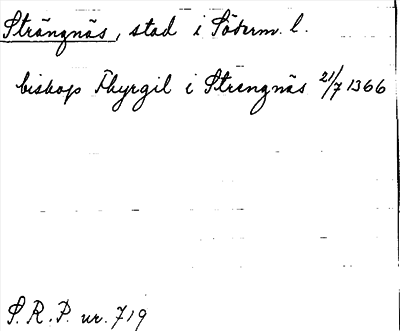 Strängnäs, stad i Söderm. l.
biskop Thyrgil i Strengnäs 21/7 1366
S. R. P. nr. 719